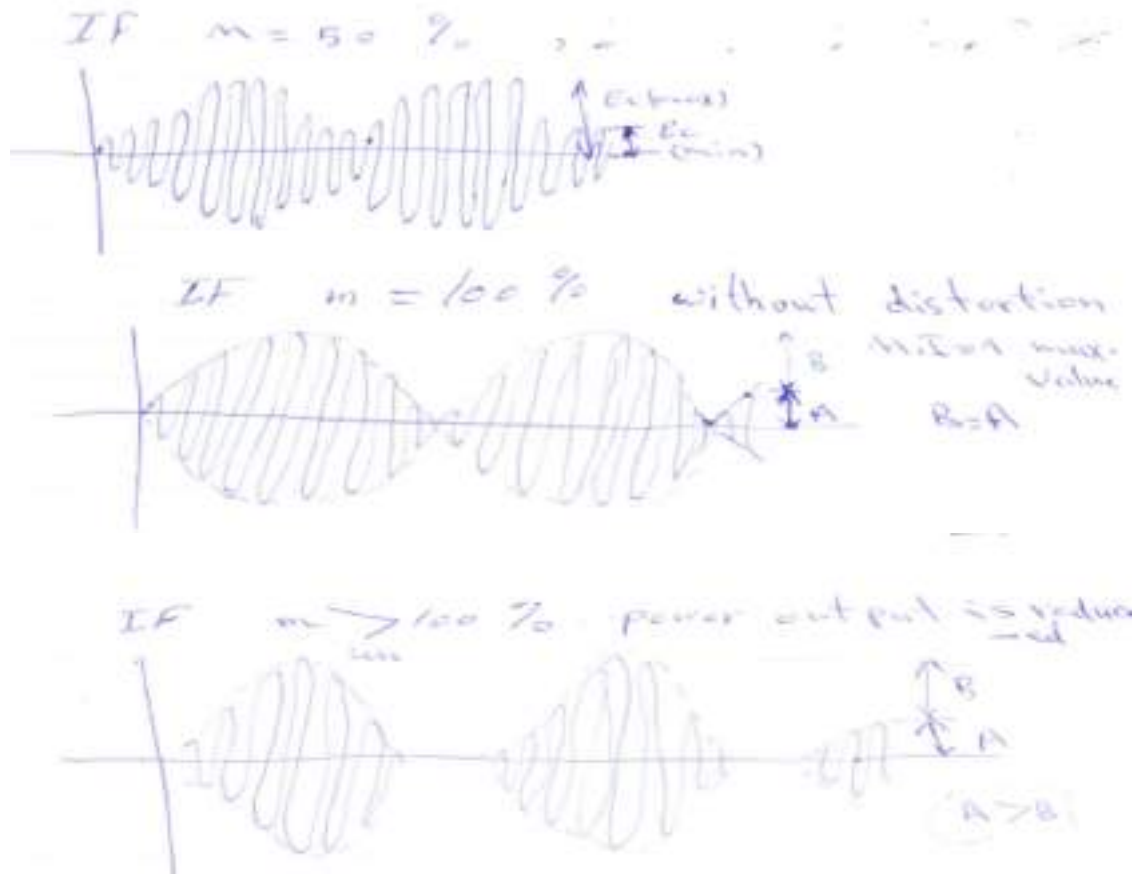 IF m = 50 %
Ec (max)
Ec
(min)
IF m = 100 % without distortion
M.I = 1 max.
value
B
A
B = A
IF m > 100 % power output is reduce
-ed
B
A
A > B